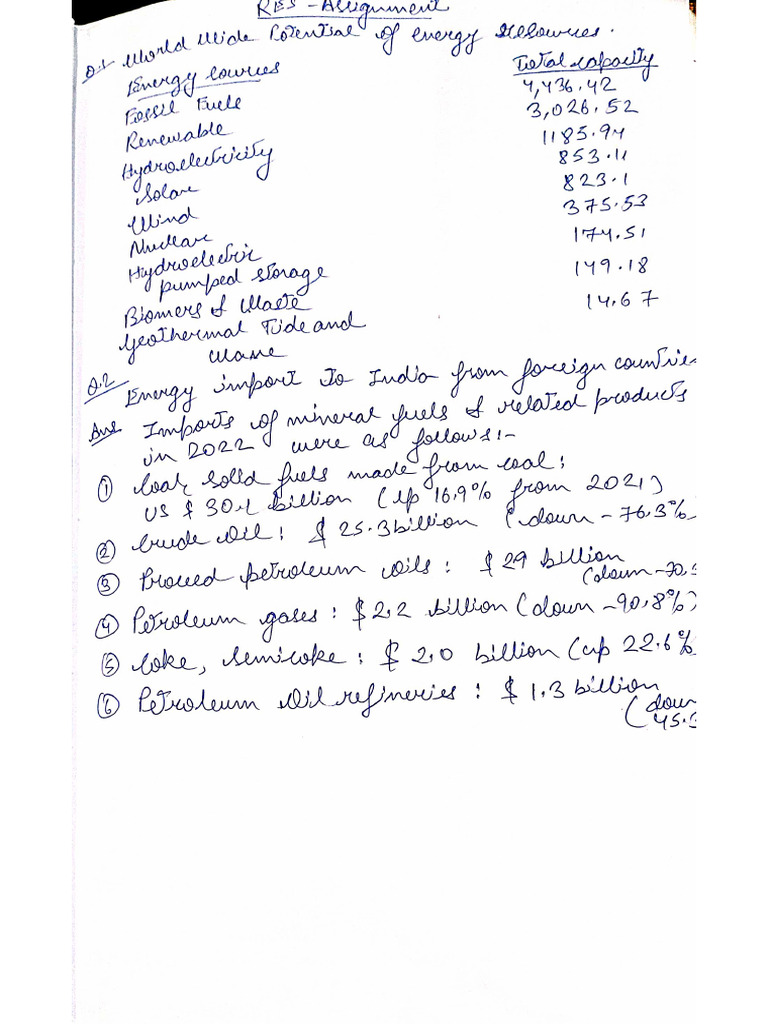 RES - Assignment
Q.1 World Wide Potential of energy resources.
Energy sources Total capacity
Fossil Fuels 4,436.42
Renewable 3,026.52
Hydroelectricity 1185.94
Solar 853.11
Wind 823.1
Nuclear 375.53
Hydroelectric
pumped storage 174.51
Biomers & Waste 149.18
Geothermal Tide and 14.67
Wave
Q.2 Energy import to India from foreign countrie
Ans Imports of mineral fuels & related products
in 2022 were as follows:-
① Coal, solid fuels made from coal:
US $ 30.1 billion (up 16.9% from 2021)
② Crude Oil: $ 25.3 billion (down -76.3%
③ Proced petroleum oils: $ 29 billion
(down -70.
④ Petroleum gases: $ 2.2 billion (down -90.8%)
⑤ Coke, semicoke: $ 2.0 billion (up 22.6%
⑥ Petroleum Oil refineries: $ 1.3 billion
(dow
45.